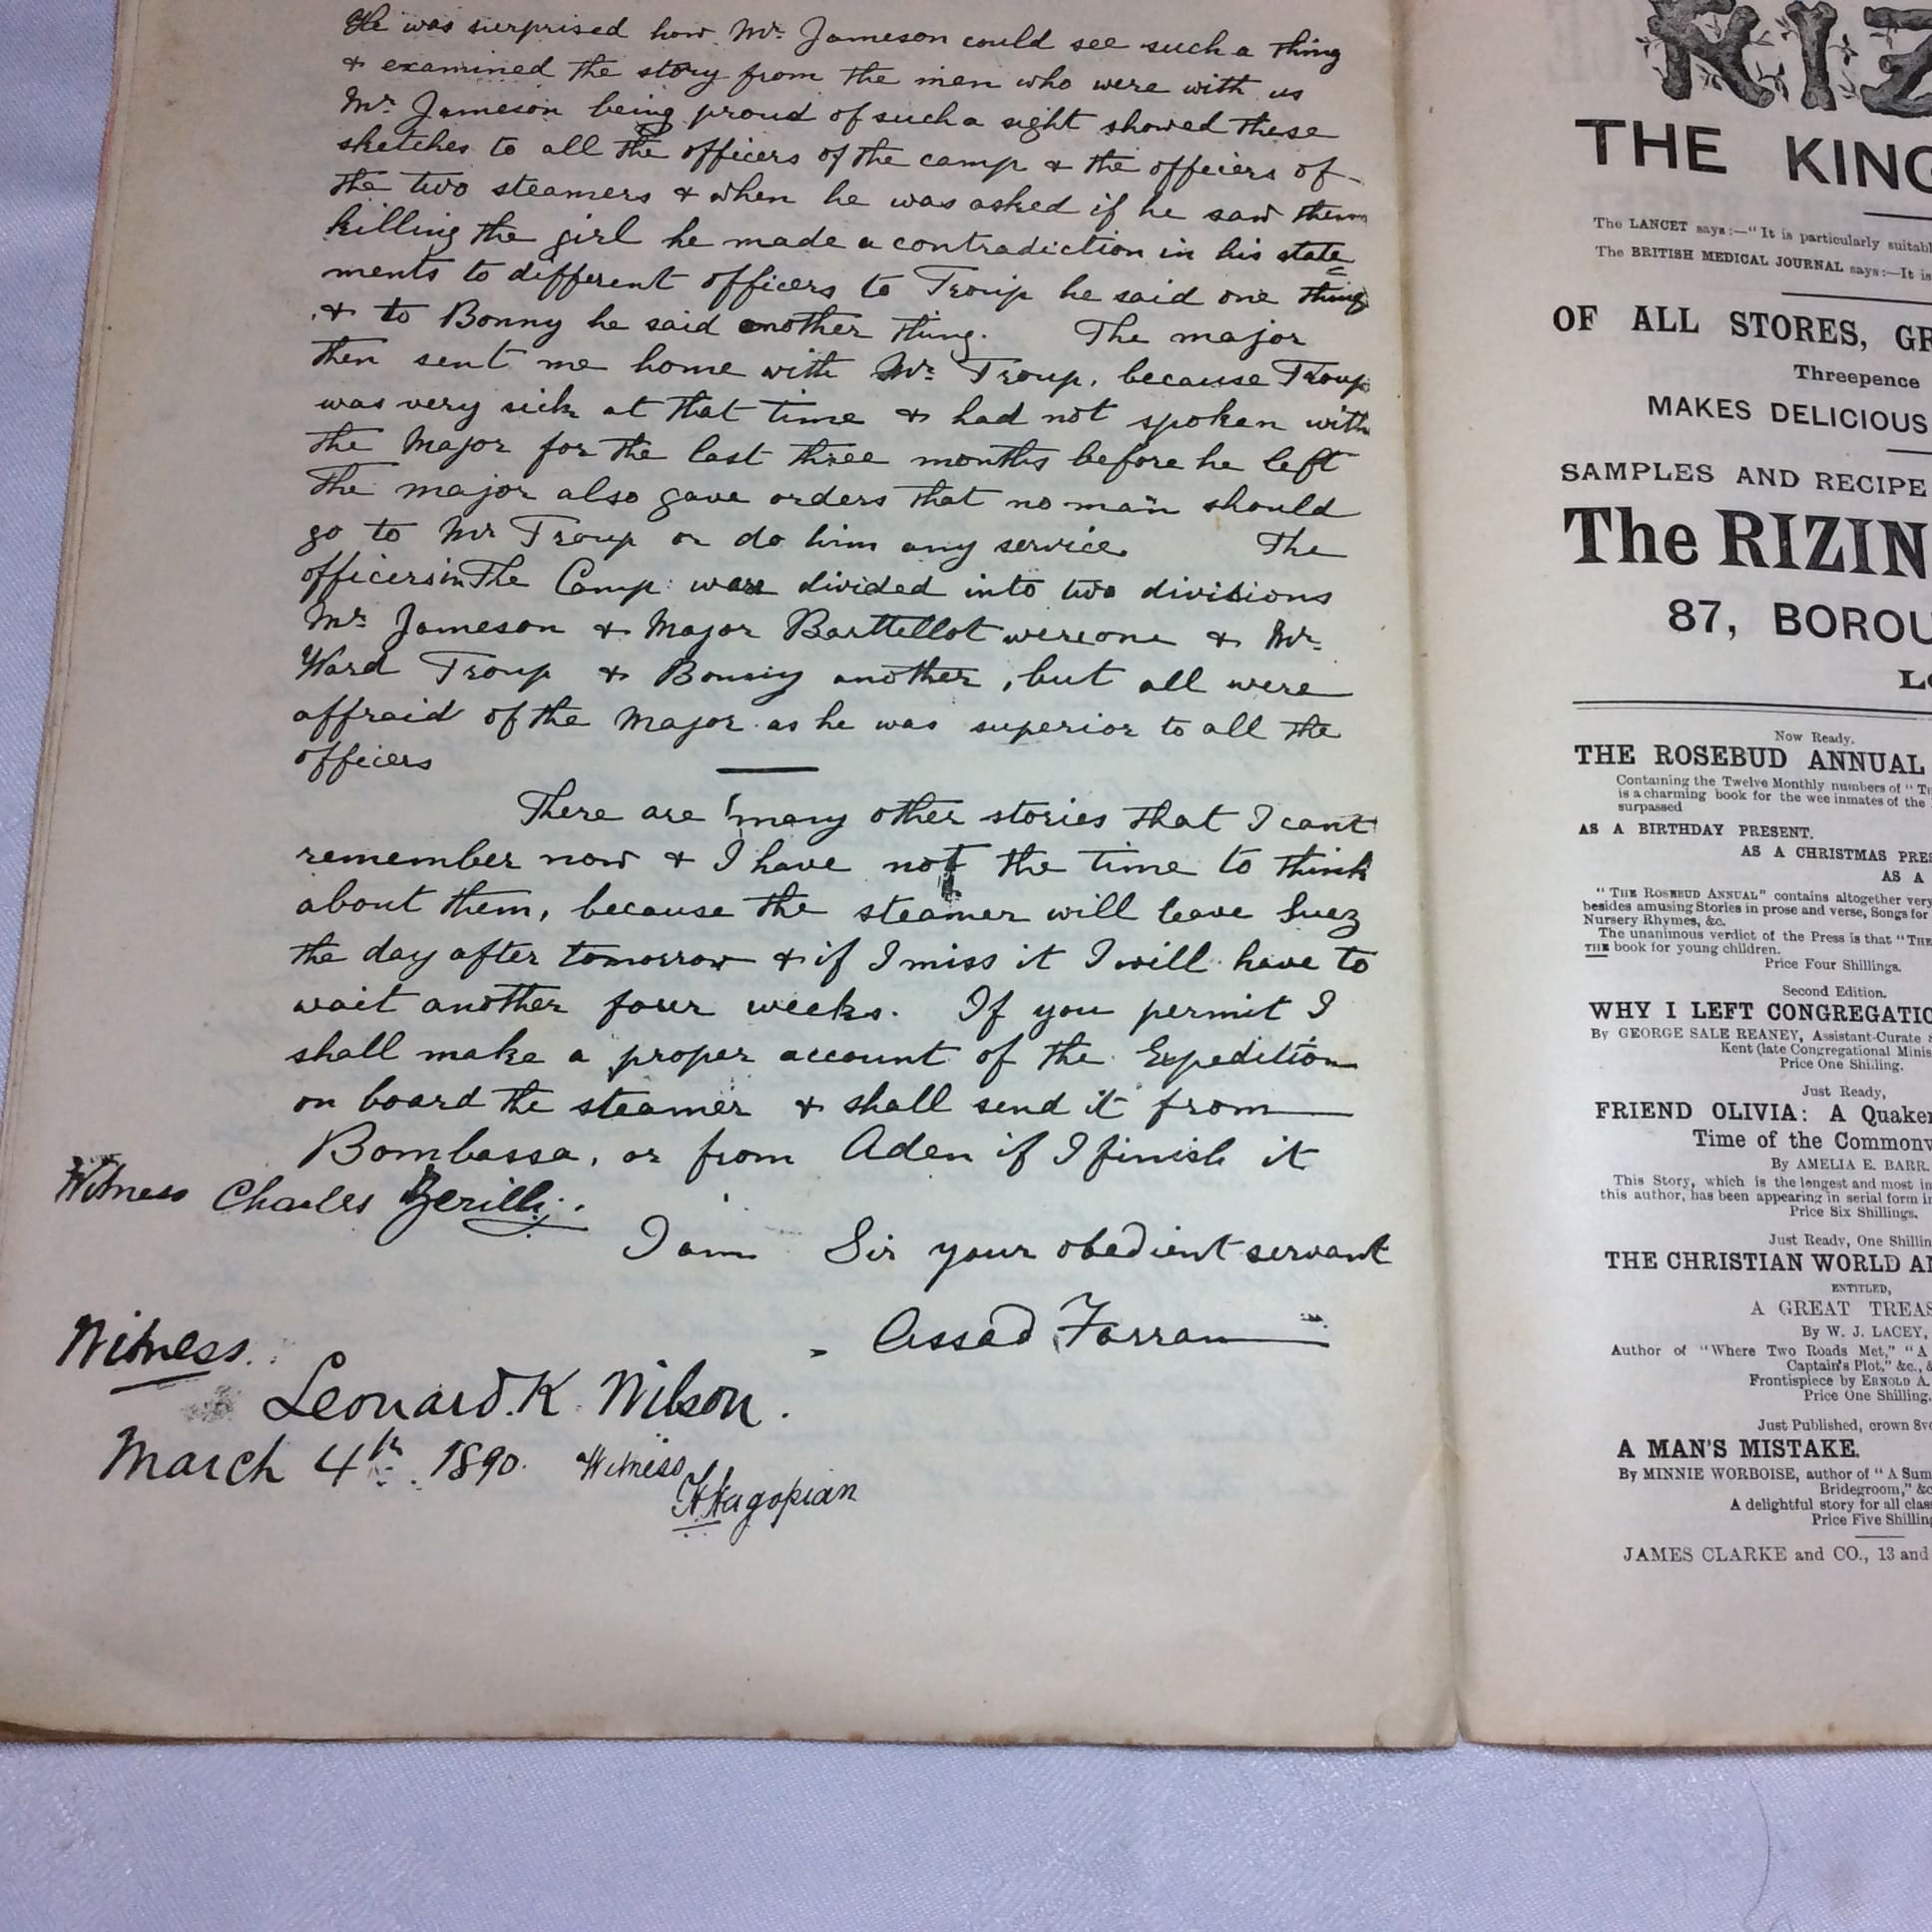 He was surprised how Mr. Jameson could see such a thing
& examined the story from the men who were with us
Mr. Jameson being proud of such a sight showed these
sketches to all the officers of the camp & the officers of
the two steamers & when he was asked if he saw them
killing the girl he made a contradiction in his state=
ments to different officers to Troup he said one thing
& to Bonny he said another thing. The major
then sent me home with Mr. Troup, because Troup
was very sick at that time & had not spoken with
the Major for the last three months before he left
The major also gave orders that no man should
go to Mr Troup or do him any service. The
officers in the Camp were divided into two divisions
Mr. Jameson & Major Barttellot were one & Mr.
Ward Troup & Bonny another, but all were
affraid of the Major as he was superior to all the
officers
There are many other stories that I cant
remember now & I have not the time to think
about them, because the steamer will leave Suez
the day after tomorrow & if I miss it I will have to
wait another four weeks. If you permit I
shall make a proper account of the Expedition
on board the steamer & shall send it from
Bombassa, or from Aden if I finish it
Witness Charles
I am Sir your obedient servant
Assad Farran
Witness.
Leonard K. Wilson.
March 4th 1890. Witness
THE KING
The LANCET says:—"It is particularly
The BRITISH MEDICAL JOURNAL says:—It is
OF ALL STORES,
Threepence
MAKES DELICIOUS
SAMPLES AND RECIPE
The RIZIN
87, BOROU
Now Ready.
THE ROSEBUD ANNUAL
Containing the Twelve Monthly numbers of "
is a charming book for the wee inmates of the
surpassed
AS A BIRTHDAY PRESENT.
AS A CHRISTMAS PRES
AS A
"THE ROSEBUD ANNUAL" contains altogether very
besides amusing Stories in prose and verse, Songs for
Nursery Rhymes, &c.
The unanimous verdict of the Press is that "THE
THE book for young children.
Price Four Shillings.
Second Edition.
WHY I LEFT CONGREGATIO
By GEORGE SALE REANEY, Assistant-Curate
Kent (late Congregational Minis
Price One Shilling.
Just Ready,
FRIEND OLIVIA: A Quaker
Time of the Commonw
By AMELIA E. BARR.
This Story, which is the longest and most in
this author, has been appearing in serial form in
Price Six Shillings.
Just Ready, One Shillin
THE CHRISTIAN WORLD AN
ENTITLED,
A GREAT TREAS
By W. J. LACEY,
Author of "Where Two Roads Met," "A
Captain's Plot," &c.,
Frontispiece by ERNOLD A.
Price One Shilling.
Just Published, crown 8vo
A MAN'S MISTAKE.
By MINNIE WORBOISE, author of "A Sum
Bridegroom," &c
A delightful story for all clas
Price Five Shilling
JAMES CLARKE and CO., 13 and